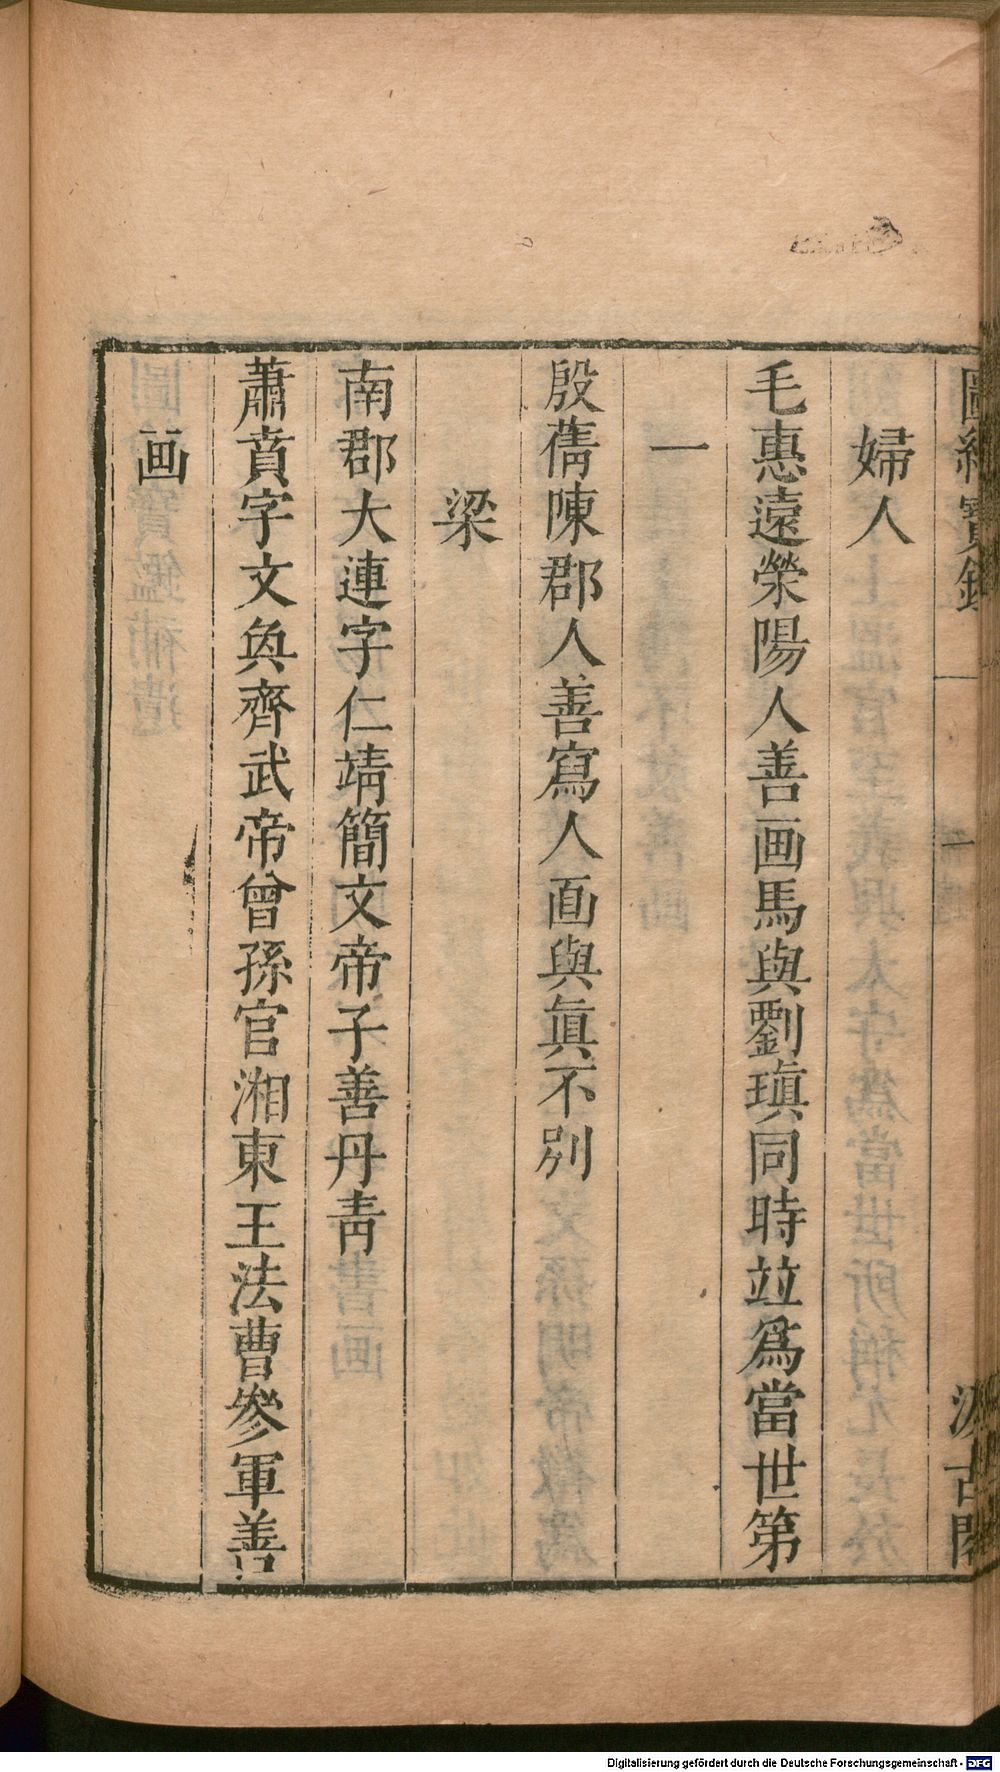 圖繪寳鑑 一 汲古閣
婦人
毛惠遠滎陽人善画馬與劉瑱同時並爲當世第
一
殷蒨陳郡人善寫人面與眞不别
梁
南郡大連字仁靖簡文帝子善丹青
蕭賁字文奐齊武帝曾孫官湘東王法曹參軍善
画
Digitalisierung gefördert durch die Deutsche Forschungsgemeinschaft - DFG